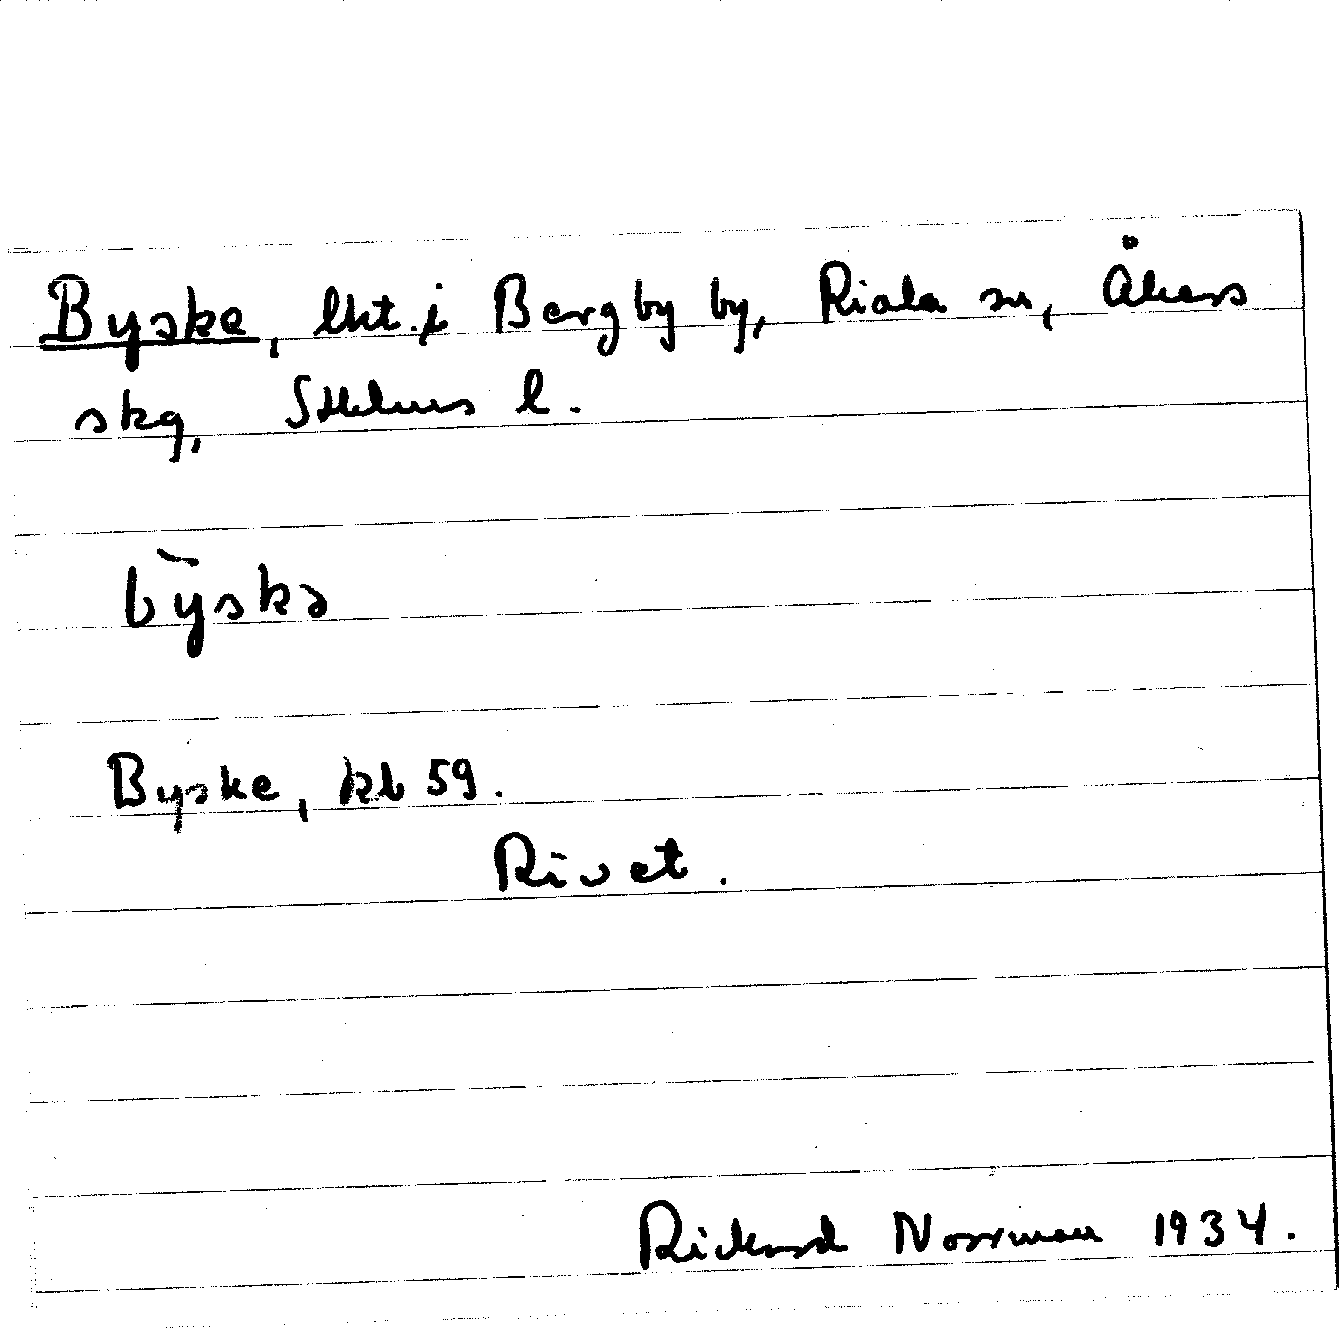 Byske, lht. i Bergby by, Riala sn, Åkers
skg, Sthlms l.
b̀yskə
Byske, kb 59.
Rivet.
Rickard Norrman 1934.